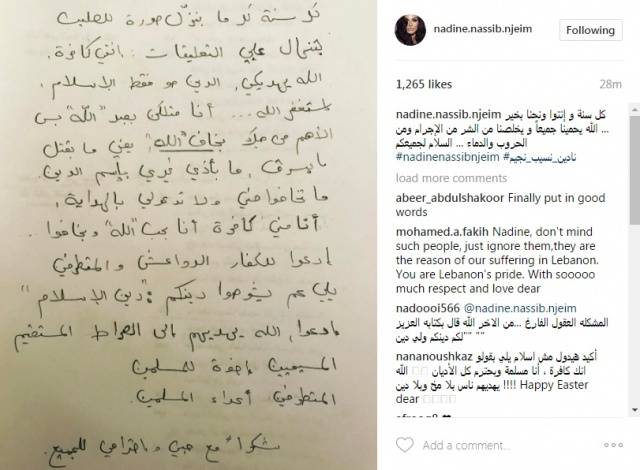 كل سنة كل ما بنزّل صورة للصليب
بتنهال عليي التعليقات: انتي كافرة.
الله يهديكي، الدين هو فقط الاسلام،
استغفر الله... أنا متلكن بعبد "الله" بس
الأهم من هيك بخاف "الله" يعني ما بقتل
ما بسرق، ما بأذي غيري بإسم الدين.
ما تخافوا مني ولا تدعولي بالهداية،
أنا مني كافرة أنا بحب "الله" وبخافو..
ادعوا للكفار الدواعش والمتطرفين
يلي عم يشوهوا دينكم: "دين الإسلام"
ادعوا، الله يهديهم الى الصراط المستقيم
المسيحيين اخوة للمسلمين
المتطرفين أعداء المسلمين.
شكراً مع حبي واحترامي للجميع.
nadine.nassib.njeim
Following
1,265 likes
28m
nadine.nassib.njeim كل سنة و إنتوا ونحنا بخير
... الله يحمينا جميعاً و يخلصنا من الشر من الإجرام ومن
الحروب والدماء .. السلام لجميعكم
#nadinenassibnjeim #نادين_نسيب_نجيم
load more comments
abeer_abdulshakoor Finally put in good
words
mohamed.a.fakih Nadine, don't mind
such people, just ignore them,they are
the reason of our suffering in Lebanon.
You are Lebanon's pride. With sooooo
much respect and love dear
nadoooi566 @nadine.nassib.njeim
المشكله العقول الفارغ...من الاخر الله قال بكتابه العزيز
"" لكم دينكم ولي دين""
nananoushkaz أكيد هيدول مش اسلام يلي بقولو
انك كافرة ، أنا مسلمة وبحترم كل الأديان الله
يهديهم ناس بلا مخ وبلا دين !!!! Happy Easter
dear
Add a comment...